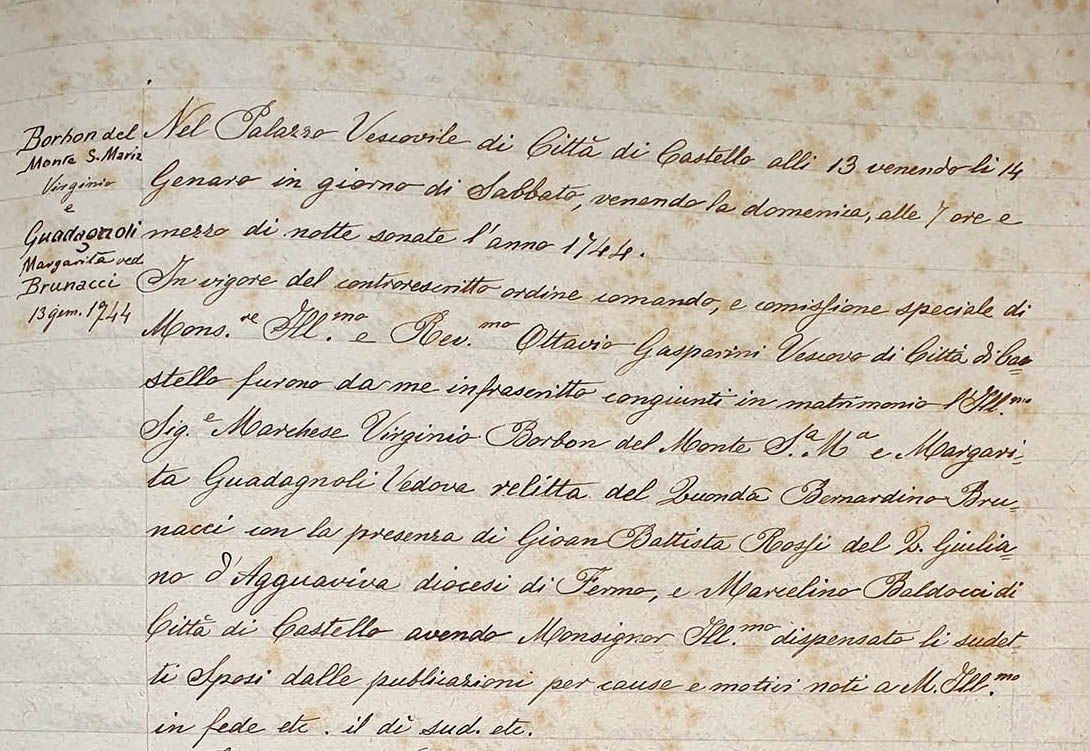 Borbon del
Monte S. Maria
Virginio
e
Guadagnoli
Margarita ved
Brunacci
13 gen. 1744
Nel Palazzo Vescovile di Città di Castello alli 13 venendo li 14
Genaro in giorno di Sabbato, venendo la domenica, alle 7 ore e
mezzo di notte sonate l'anno 1744.
In vigore del controrescritto ordine comando, e comissione speciale di
Mons.re Ill.mo e Rev.mo Ottavio Gasperini Vescovo di Città di Ca=
stello furono da me infrascritto congiunti in matrimonio l'Ill.mo
Sig.e Marchese Virginio Borbon del Monte S.a M.a e Margari=
ta Guadagnoli Vedova relitta del Quondã Bernardino Bru=
nacci con la presenza di Gioan Battista Rossi del Q. Giulia=
no d'Agguaviva diocesi di Fermo, e Marcelino Baldocci di
Città di Castello avendo Monsignor Ill.mo dispensato li sudet=
ti Sposi dalle publicazioni per cause e motivi noti a M. Ill.mo
in fede etc. il dì sud. etc.